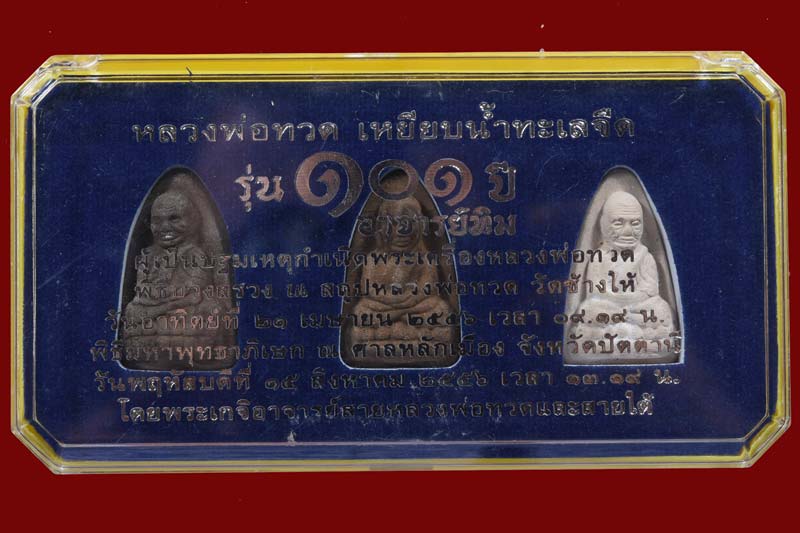 หลวงพ่อทวด เหยียบน้ำทะเลจืด
รุ่น ๑๐๑ ปี
อาจารย์ทิม
ผู้เป็นปฐมเหตุกำเนิดพระเครื่องหลวงพ่อทวด
พิธีบวงสรวง ณ สถูปหลวงพ่อทวด วัดช้างให้
วันอาทิตย์ที่ ๒๑ เมษายน ๒๕๕๖ เวลา ๐๙.๑๙ น.
พิธีมหาพุทธาภิเษก ณ ศาลหลักเมือง จังหวัดปัตตานี
วันพฤหัสบดีที่ ๑๕ สิงหาคม ๒๕๕๖ เวลา ๑๓.๑๙ น.
โดยพระเกจิอาจารย์สายหลวงพ่อทวดและสายใต้